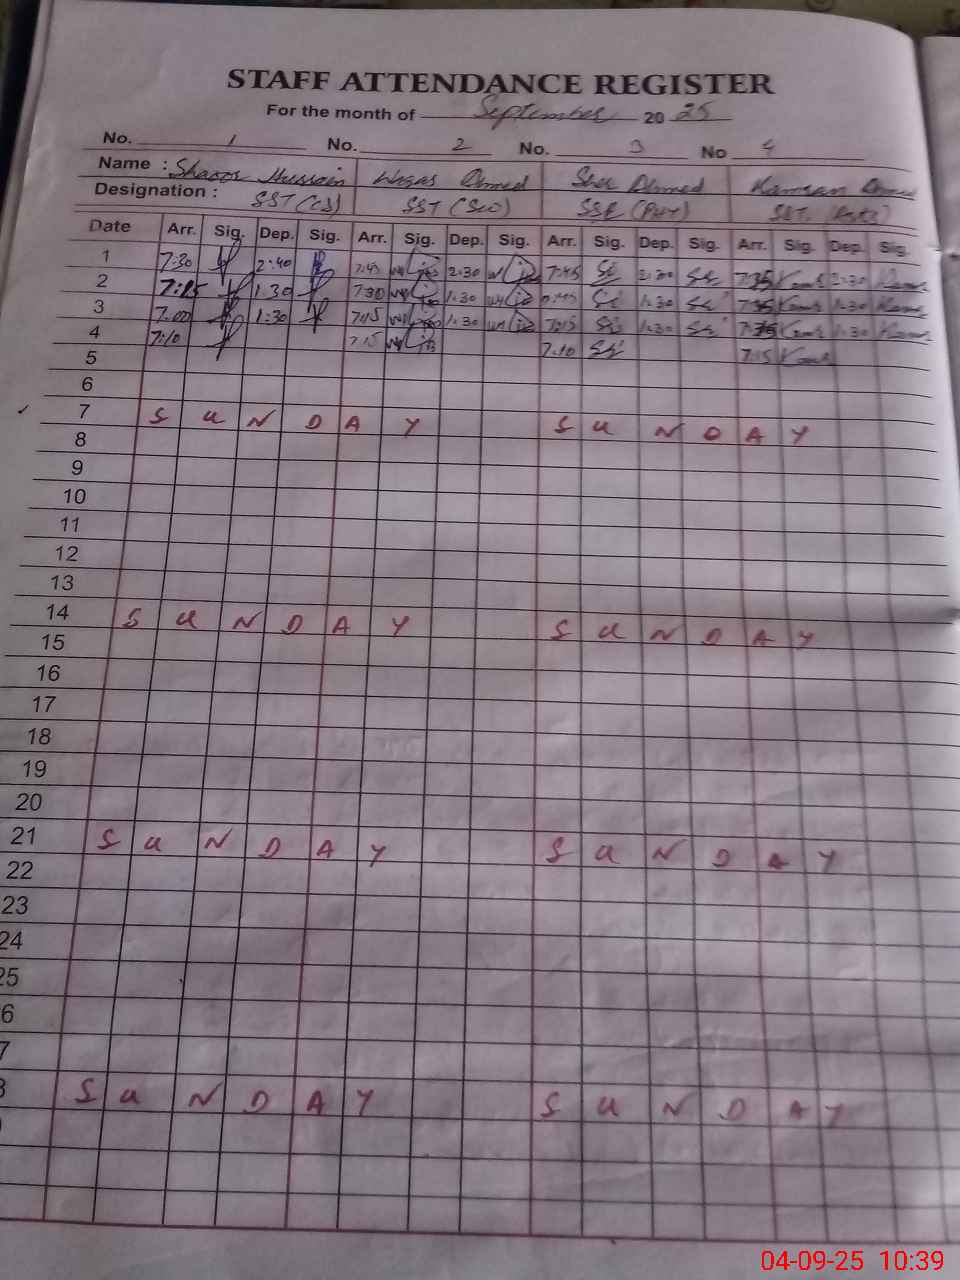 STAFF ATTENDANCE REGISTER
For the month of September 20 25
No. 1 No. 2 No. 3 No 4
Name : Hussain Waqas Ahmed Sher Ahmed Kamran Ahmed
Designation : SST (CS) SST (Sci) SST
Date Arr. Sig. Dep. Sig. Arr. Sig. Dep. Sig. Arr. Sig. Dep. Sig. Arr. Sig. Dep. Sig.
1 7:30 2:40 7:45 2:30 7:45 2:30 7:35 2:30
2 7:15 1:30 7:30 1:30 1:30 7:35 1:30
3 7:00 1:30 7:15 1:30 7:15 1:30 7:35 1:30
4 7:10 7:15 7:10 7:15
5
6
7 S U N D A Y S U N D A Y
8
9
10
11
12
13
14 S U N D A Y S U N D A Y
15
16
17
18
19
20
21 S U N D A Y S U N D A Y
22
23
24
25
6
7
S U N D A Y S U N D A Y
04-09-25 10:39